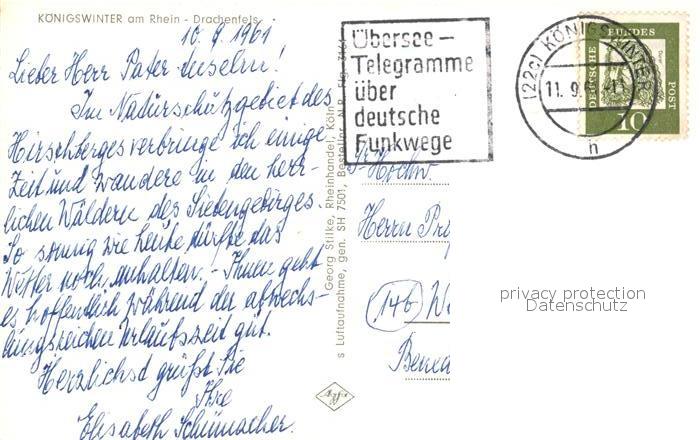 KÖNIGSWINTER am Rhein - Drachenfels
10. 9. 1961
Lieber Herr Pater Anselm!
Im Naturschutzgebiet des
Hirschberges verbringe ich einige
Zeit und wandere in den herr-
lichen Wäldern des Siebengebirges.
So sonnig wie heute dürfte das
Wetter noch anhalten. - Ihnen geht
es hoffentlich während der abwechs-
lungsreichen Urlaubszeit gut.
Herzlichst grüßt Sie
Ihre
Elisabeth Schumacher.
Georg Stilke, Rheinhandel, Köln
s Luftaufnahme, gen. SH 7501, Besteller N.R.
Übersee-
Telegramme
über
deutsche
Funkwege
(22c) KÖNIGSWINTER
11. 9.
h
DEUTSCHE BUNDES POST
10
Hochw.
Herrn
(14b)
privacy protection
Datenschutz
Agfa